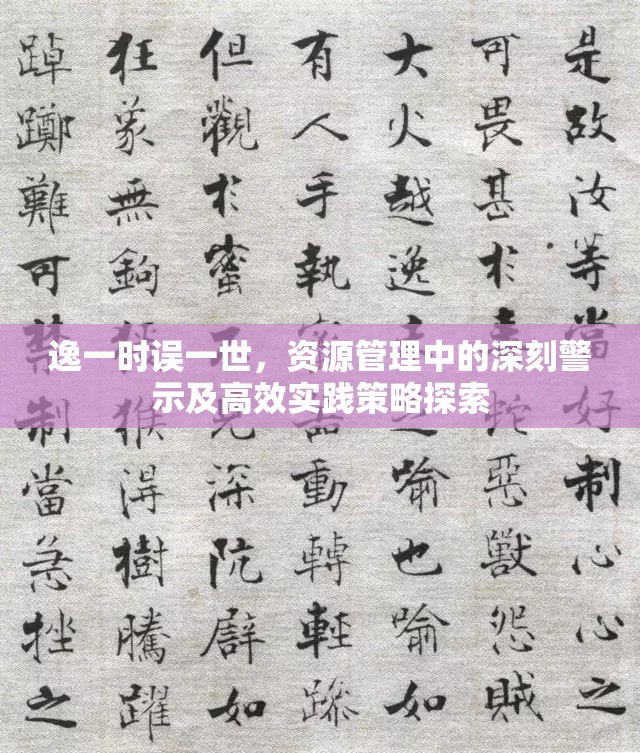 是故汝等當好制心心之
可畏甚於毒蛇惡獸怨賊
大火越逸喻也喻如
有人手執器動轉輕躁
但觀於蜜不見深阬辟如
狂象無鉤猴得樹騰躍
踔躑難可禁制當急挫之
逸一时误一世，资源管理中的深刻警
示及高效实践策略探索